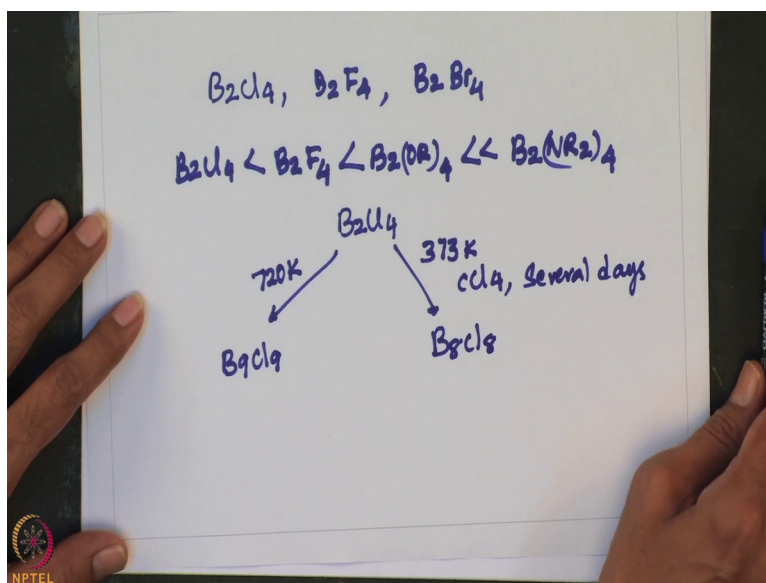 B2Cl4, B2F4, B2Br4
B2Cl4 < B2F4 < B2(OR)4 << B2(NR2)4
B2Cl4
720K
373K
CCl4, Several days
B9Cl9
B8Cl8
NPTEL